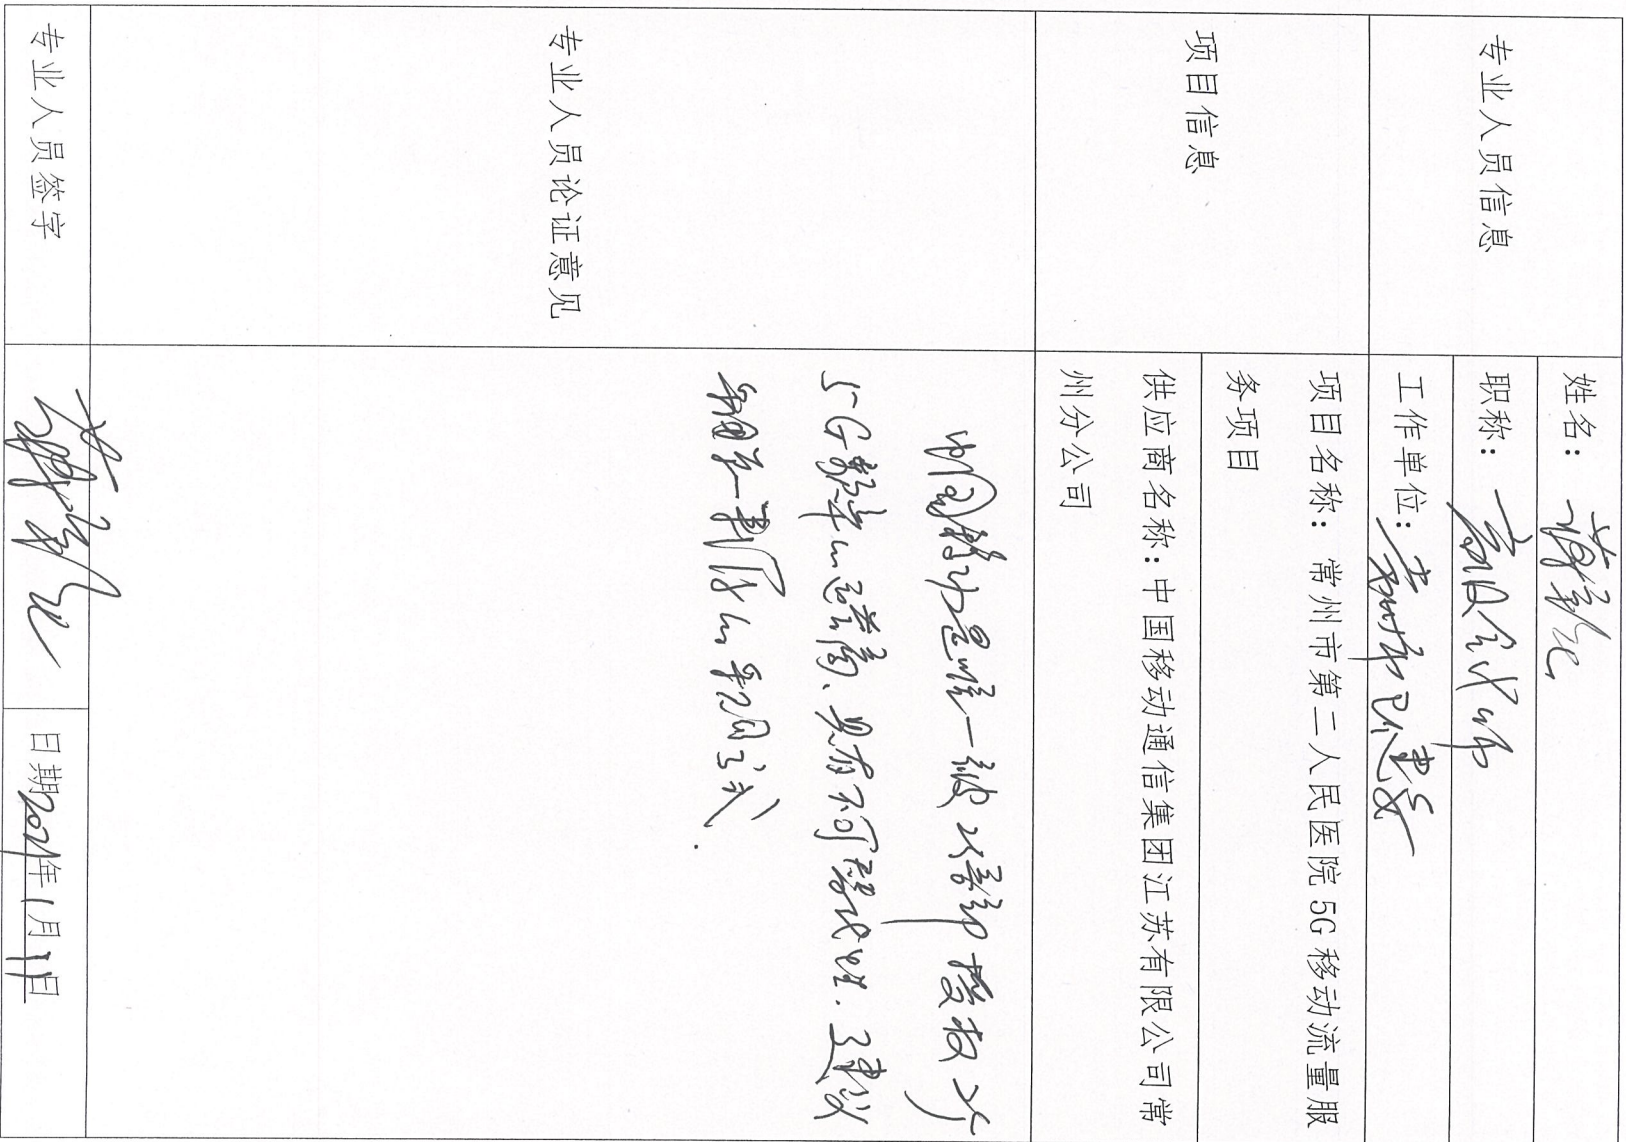 专业人员信息
姓名：
职称：高级会计师
工作单位：常州市卫健委
项目信息
项目名称：常州市第二人民医院5G移动流量服
务项目
供应商名称：中国移动通信集团江苏有限公司常
州分公司
专业人员论证意见
中国移动是唯一被工信部授权
5G频率的运营商、具有不可替代性.建议
采用单一来源的采购方式.
专业人员签字
日期 年1月 日